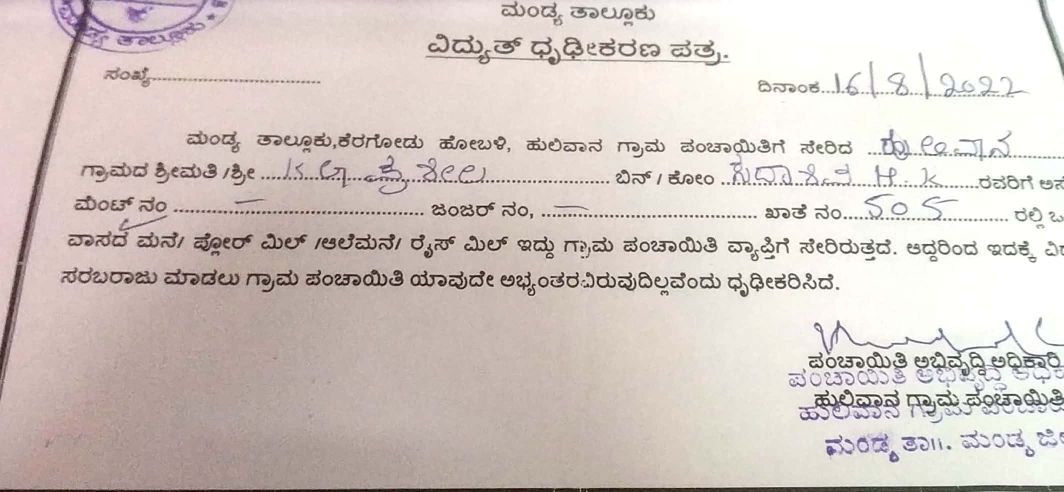 ಮಂಡ್ಯ ತಾಲ್ಲೂಕು
ಮಂಡ್ಯ ತಾಲ್ಲೂಕು
ವಿದ್ಯುತ್ ಧೃಢೀಕರಣ ಪತ್ರ.
ಸಂಖ್ಯೆ........................................
ದಿನಾಂಕ...16/8/2022
ಮಂಡ್ಯ ತಾಲ್ಲೂಕು,ಕೆರಗೋಡು ಹೋಬಳಿ, ಹುಲಿವಾನ ಗ್ರಾಮ ಪಂಚಾಯಿತಿಗೆ ಸೇರಿದ ..ಹುಲಿವಾನ
ಗ್ರಾಮದ ಶ್ರೀಮತಿ /ಶ್ರೀ .... ಬಿನ್ / ಕೋಂ .. H.K......ರವರಿಗೆ
ಮೆಂಟ್ ನಂ .......–....... ಜಂಜರ್ ನಂ, ..–............ ಖಾತೆ ನಂ.....505........ ರಲ್ಲಿ
ವಾಸದ ಮನೆ/ ಫ್ಲೋರ್ ಮಿಲ್ /ಆಲೆಮನೆ/ ರೈಸ್ ಮಿಲ್ ಇದ್ದು ಗ್ರಾಮ ಪಂಚಾಯಿತಿ ವ್ಯಾಪ್ತಿಗೆ ಸೇರಿರುತ್ತದೆ. ಆದ್ದರಿಂದ ಇದಕ್ಕೆ
ಸರಬರಾಜು ಮಾಡಲು ಗ್ರಾಮ ಪಂಚಾಯಿತಿ ಯಾವುದೇ ಅಭ್ಯಂತರವಿರುವುದಿಲ್ಲವೆಂದು ಧೃಢೀಕರಿಸಿದೆ.
ಪಂಚಾಯಿತಿ ಅಭಿವೃದ್ಧಿ ಅಧಿಕಾರಿ
ಪಂಚಾಯಿತಿ ಅಭಿವೃದ್ಧಿ
ಹುಲಿವಾನ ಗ್ರಾಮ ಪಂಚಾಯಿತಿ
ಹುಲಿವಾನ ಗ್ರಾಮ
ಮಂಡ್ಯ ತಾ॥. ಮಂಡ್ಯ